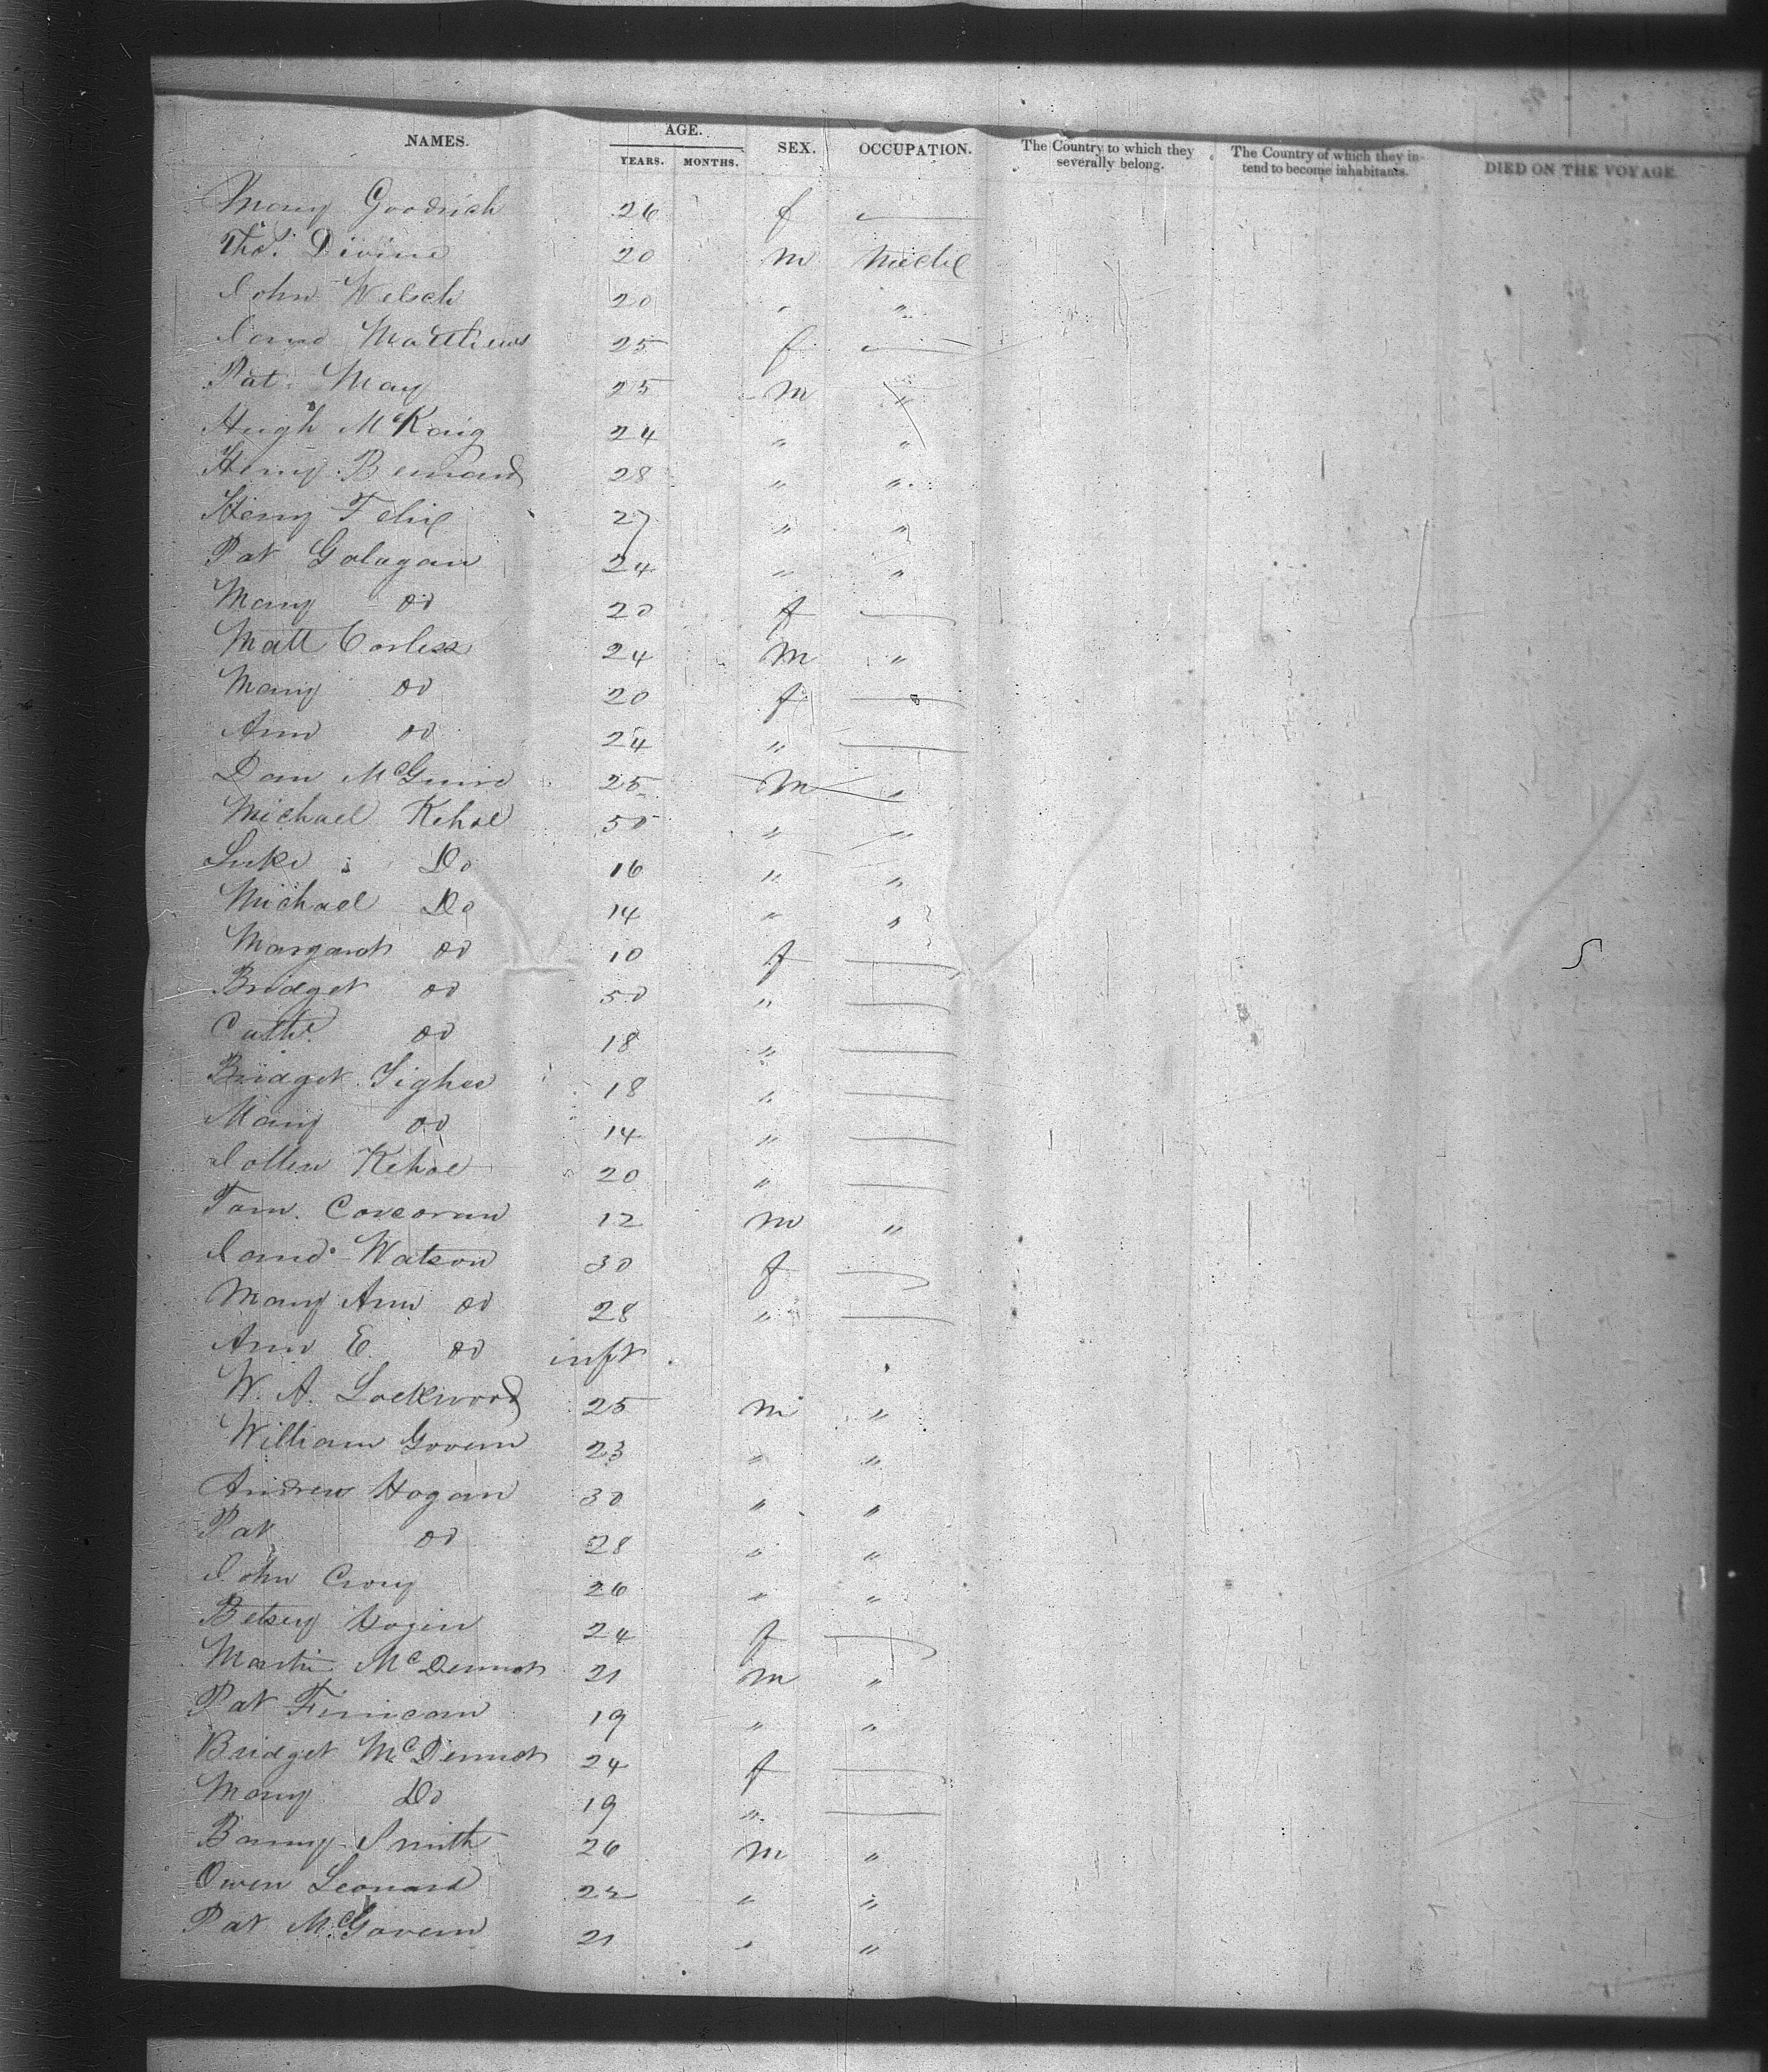 NAMES. AGE. YEARS. MONTHS. SEX. OCCUPATION. The Country to which they severally belong. The Country of which they intend to become inhabitants. DIED ON THE VOYAGE.
Mary Goodrich 26 f
Thos. Divine 20 m
John Welsch 20 " "
Jane Matthews 25 f
Pat. May 25 m "
Hugh McKaig 24 " "
Henry Bernard 28 " "
Henry Felix 27 " "
Pat Galagan 24 " "
Mary do 20 f
Matt Corless 24 m "
Mary do 20 f
Ann do 24 "
Dan McGuire 25 m "
Michael Kehoe 50 " "
Luke Do 16 " "
Michael Do 14 " "
Margaret do 10 f
Bridget do 50 "
Cathe. do 18 "
Bridget Tighee 18 "
Mary do 14 "
Kehoe 20 "
Tom. Corcoran 12 m "
Jane Watson 30 f
Mary Ann do 28 "
Ann E. do inft
W. A. Lockwood 25 m "
William Govern 23 " "
Andrew Hogan 30 " "
Pat do 28 " "
John 26 " "
Betsey Hogin 24 f
Martin McDermot 21 m "
Pat Finican 19 " "
Bridget McDermot 24 f
Mary Do 19 "
Barney Smith 26 m "
Owen Leonard 22 " "
Pat McGovern 21 " "